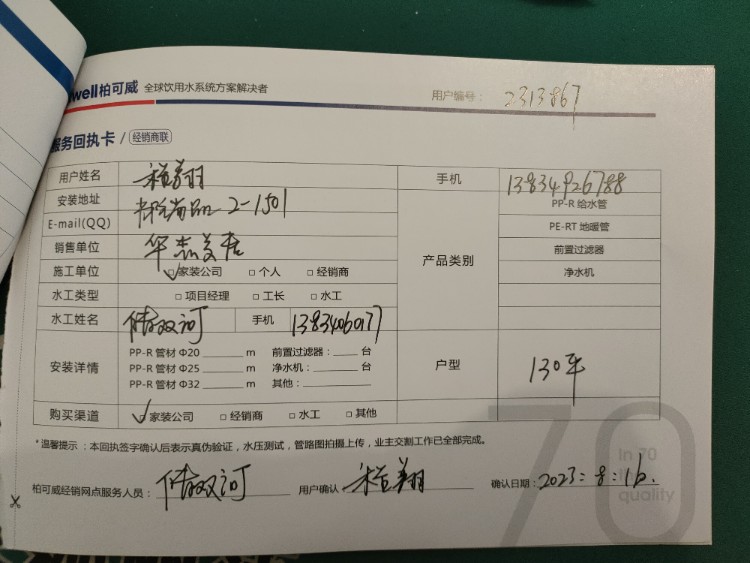 well柏可威 全球饮用水系统方案解决者 用户编号： 2313867
服务回执卡 / 经销商联
用户姓名 手机 13834926788
安装地址 2-1501 PP-R 给水管
E-mail(QQ) PE-RT 地暖管
销售单位 华杰美居 产品类别 前置过滤器
施工单位 □家装公司 □个人 □经销商 净水机
水工类型 □项目经理 □工长 □水工
水工姓名 储双河 手机 13834060177
安装详情 PP-R 管材 Φ20 ______ m 前置过滤器：____ 台 户型 130平
PP-R 管材 Φ25 ______ m 净水机：____ 台
PP-R 管材 Φ32 ______ m 其他：
购买渠道 □家装公司 □经销商 □水工 □其他
*温馨提示：本回执签字确认后表示真伪验证，水压测试，管路图拍摄上传，业主交割工作已全部完成。
70
In 70
quality
柏可威经销网点服务人员： 储双河 用户确认 确认日期：2023：8：16.